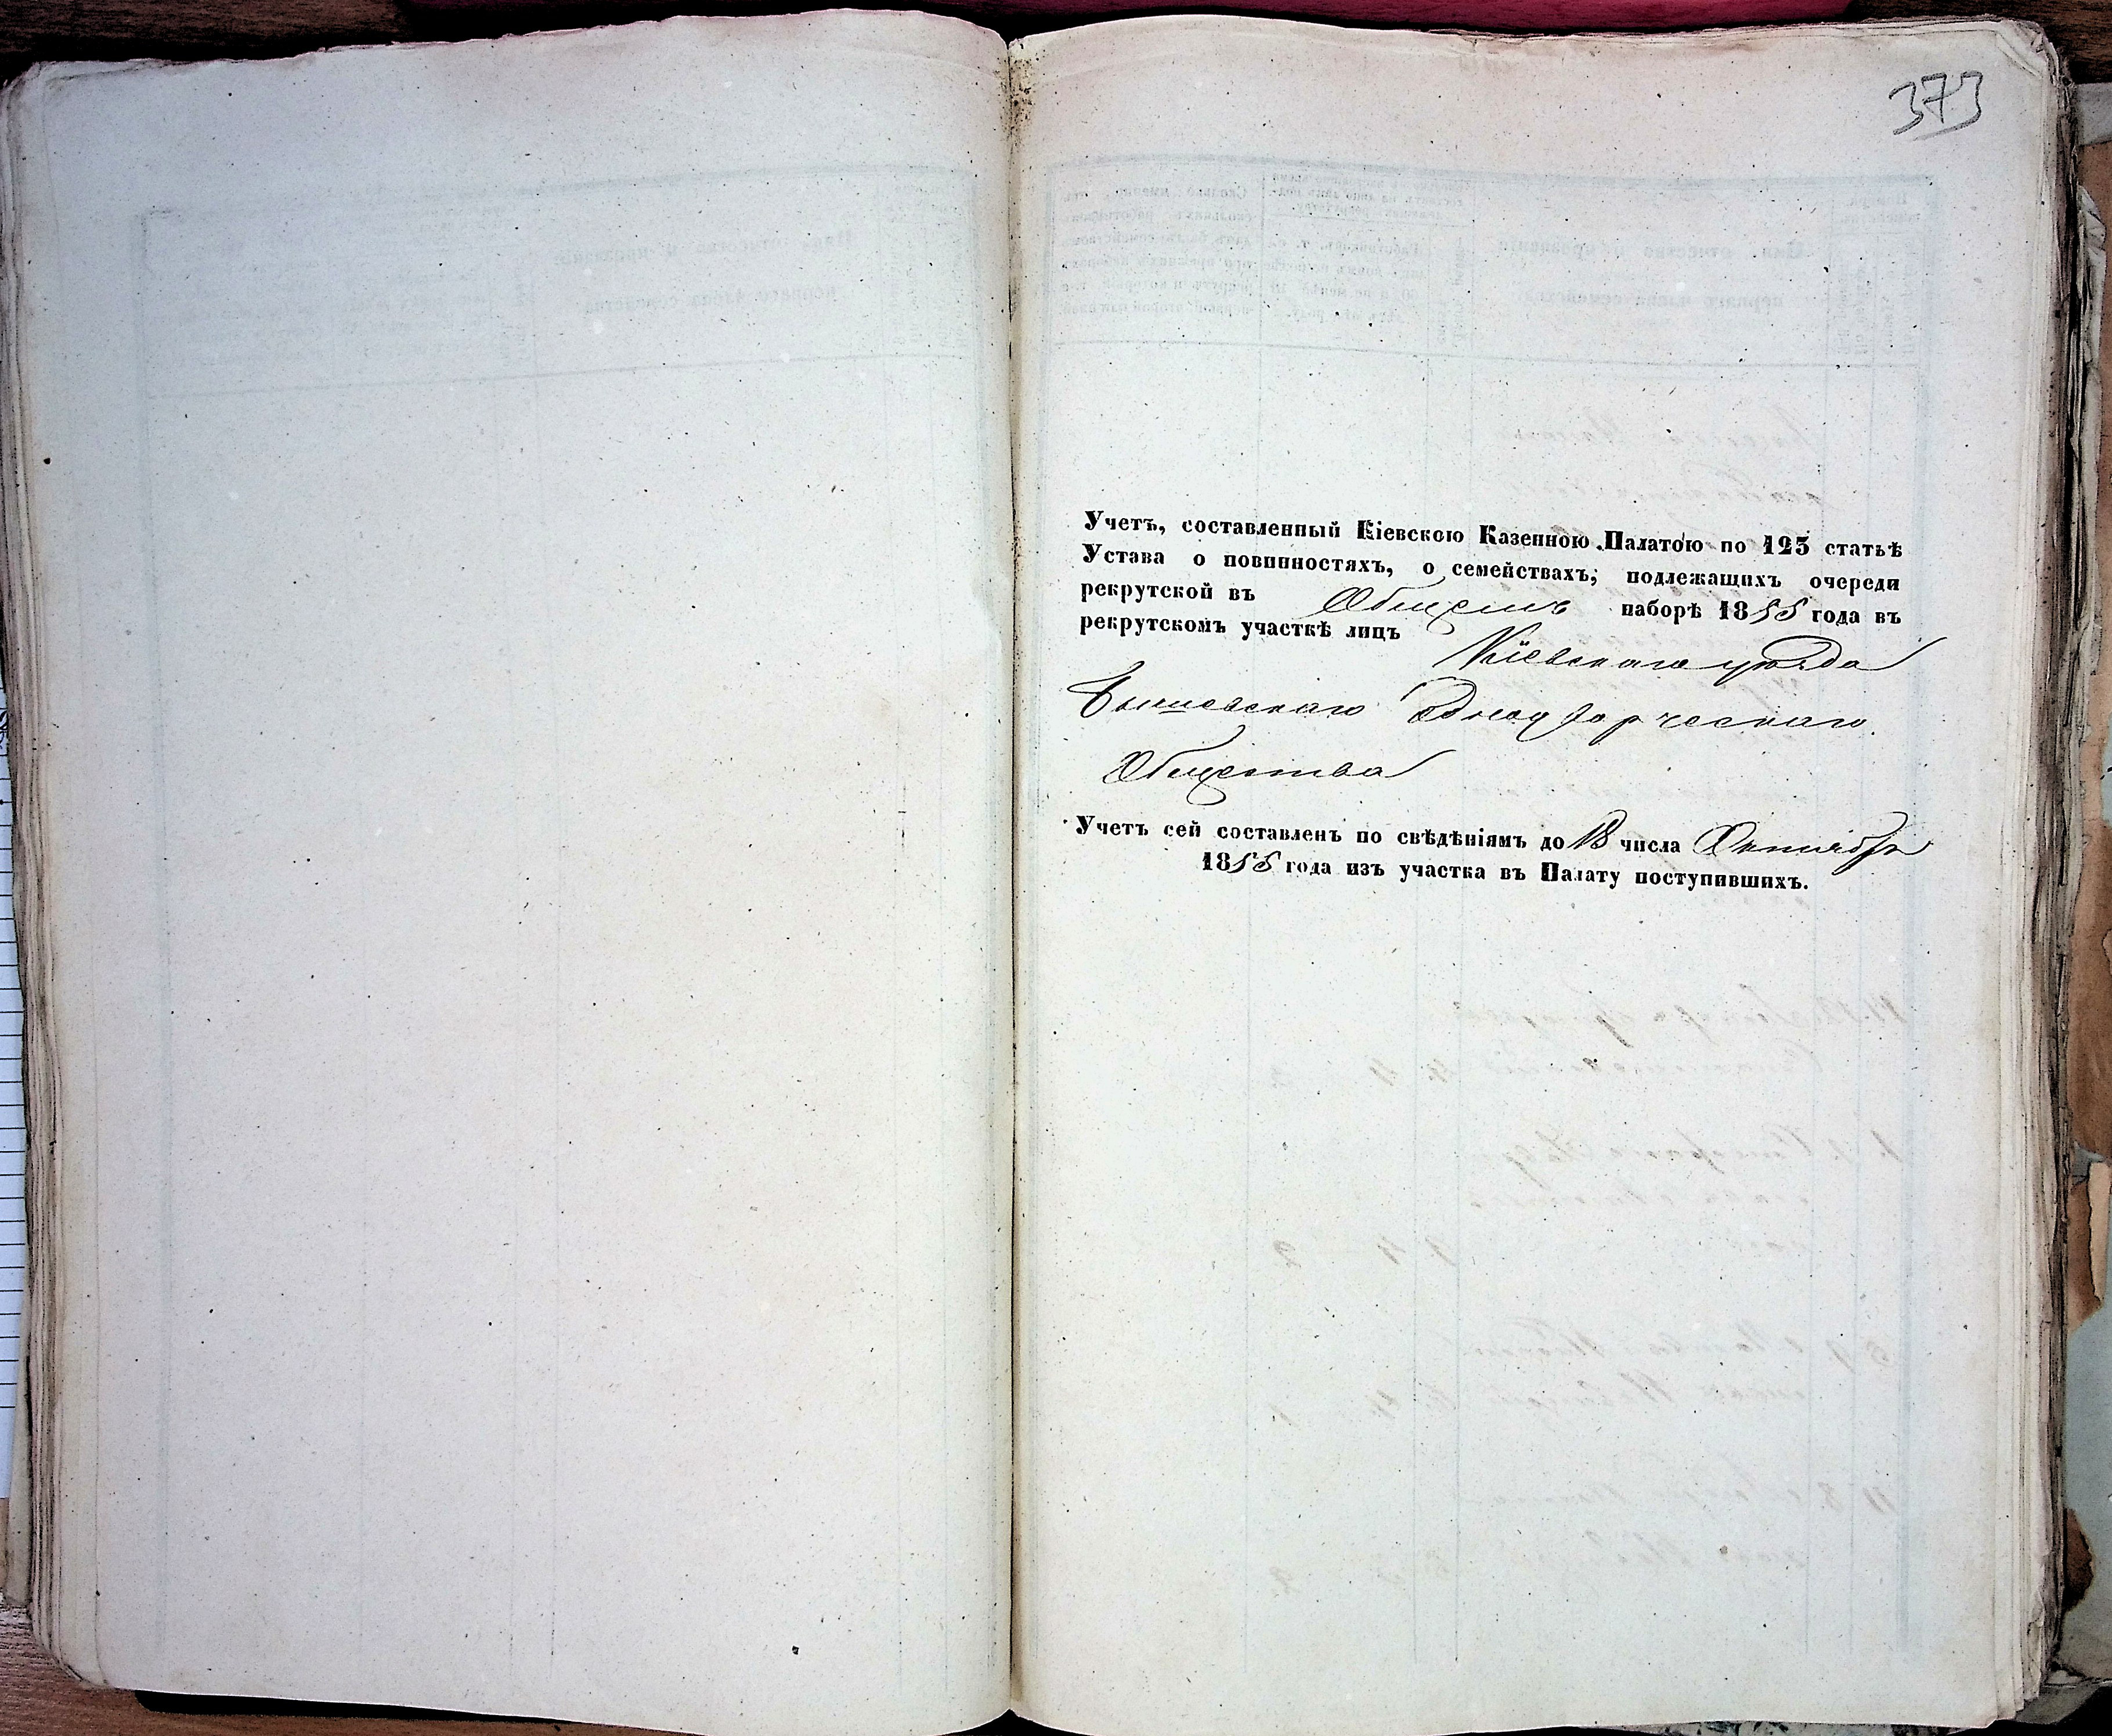 373
Учетъ, составленный Кіевскою Казенною Палатою по 125 статьѣ
Устава о повинностяхъ, о семействахъ, подлежащихъ очереди
рекрутской въ Общемъ наборѣ 1855 года въ
рекрутскомъ участкѣ лицъ Кіевскаго уѣзда
Бышевскаго Однодворческаго
Общества
Учетъ сей составленъ по свѣдѣніямъ до 18 числа Октября
1855 года изъ участка въ Палату поступившихъ.